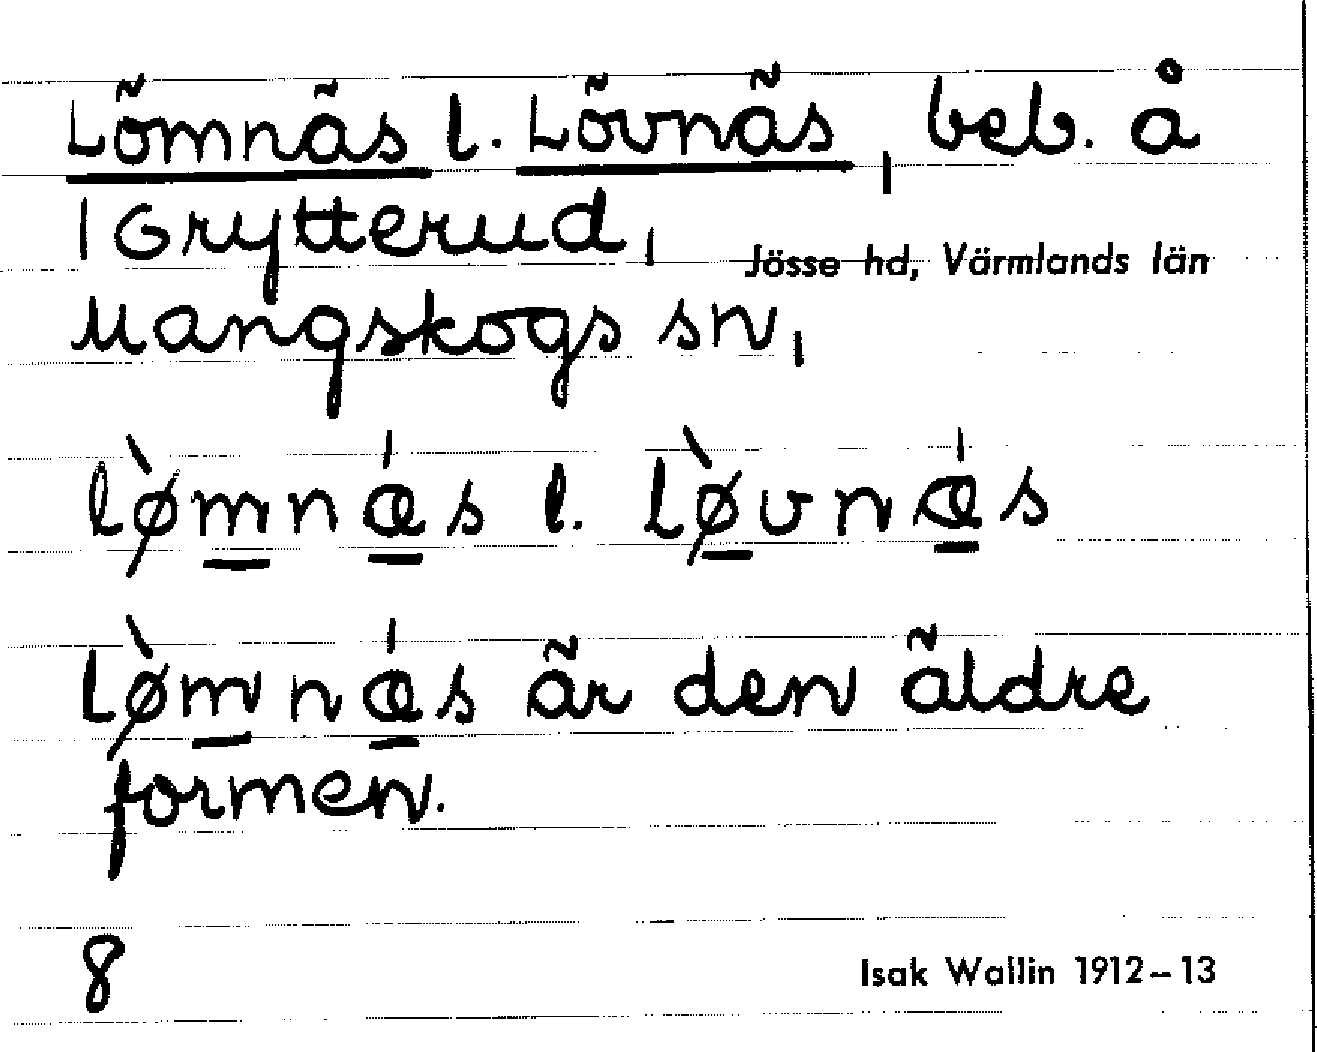 Lömnäs l. Lövnäs, beb. å
1 Grytterud,
Jösse hd, Värmlands län
Mangskogs sn,
lø̀mnǽs l. lø̀vnǽs
Lø̀mnǽs är den äldre
formen.
8
Isak Wallin 1912–13